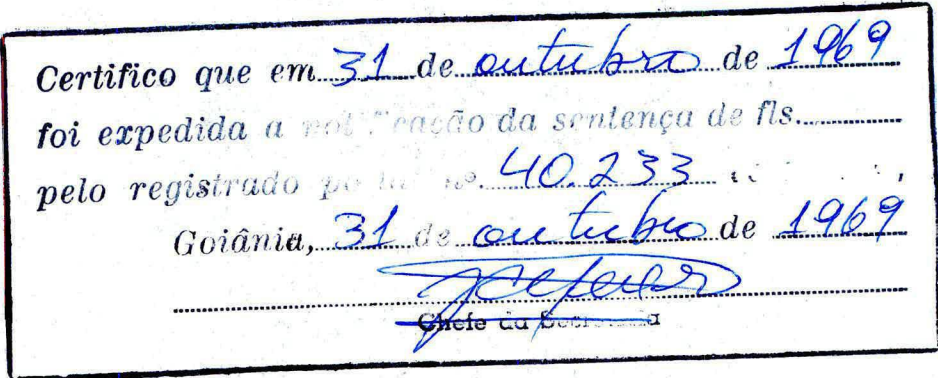 Certifico que em 31 de outubro de 1969
foi expedida a notificação da sentença de fls.
pelo registrado postal nº. 40.233
Goiânia, 31 de outubro de 1969
Chefe da Secretaria